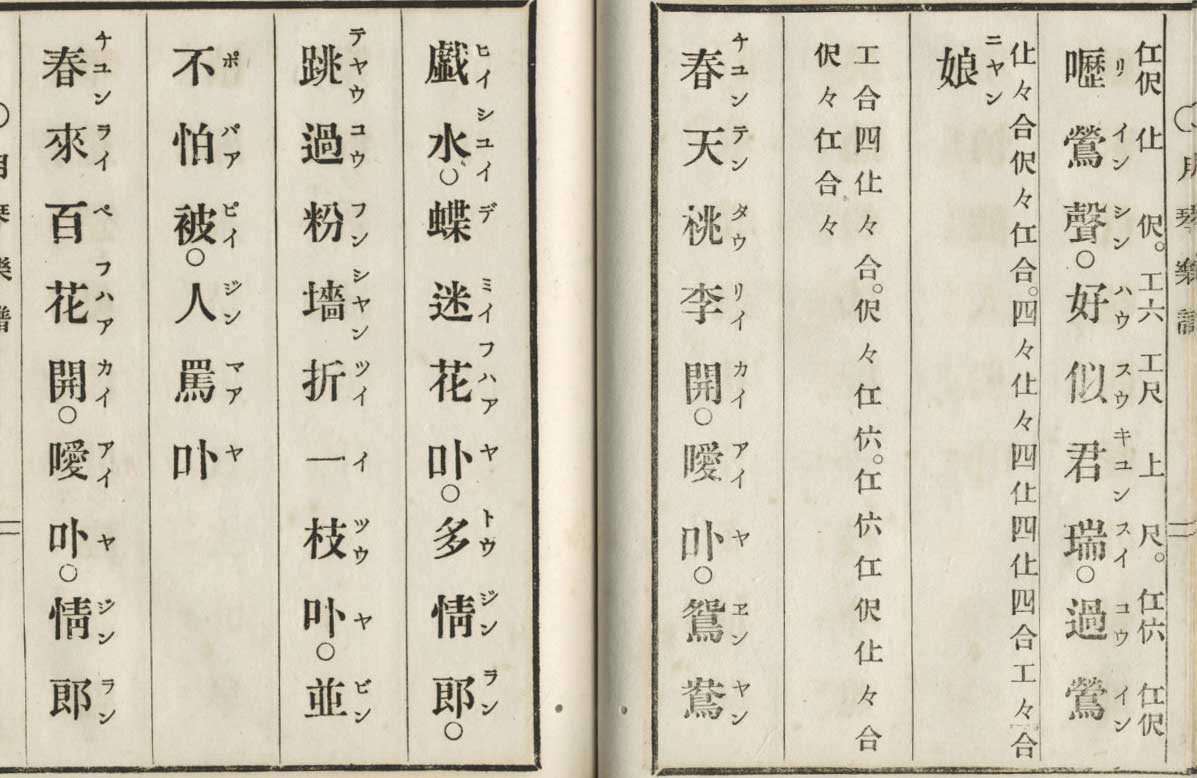 月琴樂譜
二
仜伬 仩 伬。工六 工尺 上 尺。仜㐳 仜伬
リ イン シン ハウ スウ キユン スイ コウ イン
嚦鶯聲。好似君瑞。過鶯
仩々合伬々仜合。四々仩々四仩四仩四合工々合
ニヤン
娘
工合四仩々合。伬々仜㐳。仜㐳仜伬仩々合
伬々仜合々
チユン テン タウ リイ カイ アイ ヤ ヱン ヤン
春天桃李開。噯卟。鴛鴦
ヒイ シユイ デ ミイ フハア ヤ トウ ジン ラン
戯水。蝶迷花卟。多情郎。
テヤウ コウ フン シヤン ツイ イ ツウ ヤ ビン
跳過粉墻折一枝卟。並
ポ パア ピイ ジン マア ヤ
不怕被。人罵卟
チユン ライ ペ フハア カイ アイ ヤ ジン ラン
春來百花開。噯卟。情郎